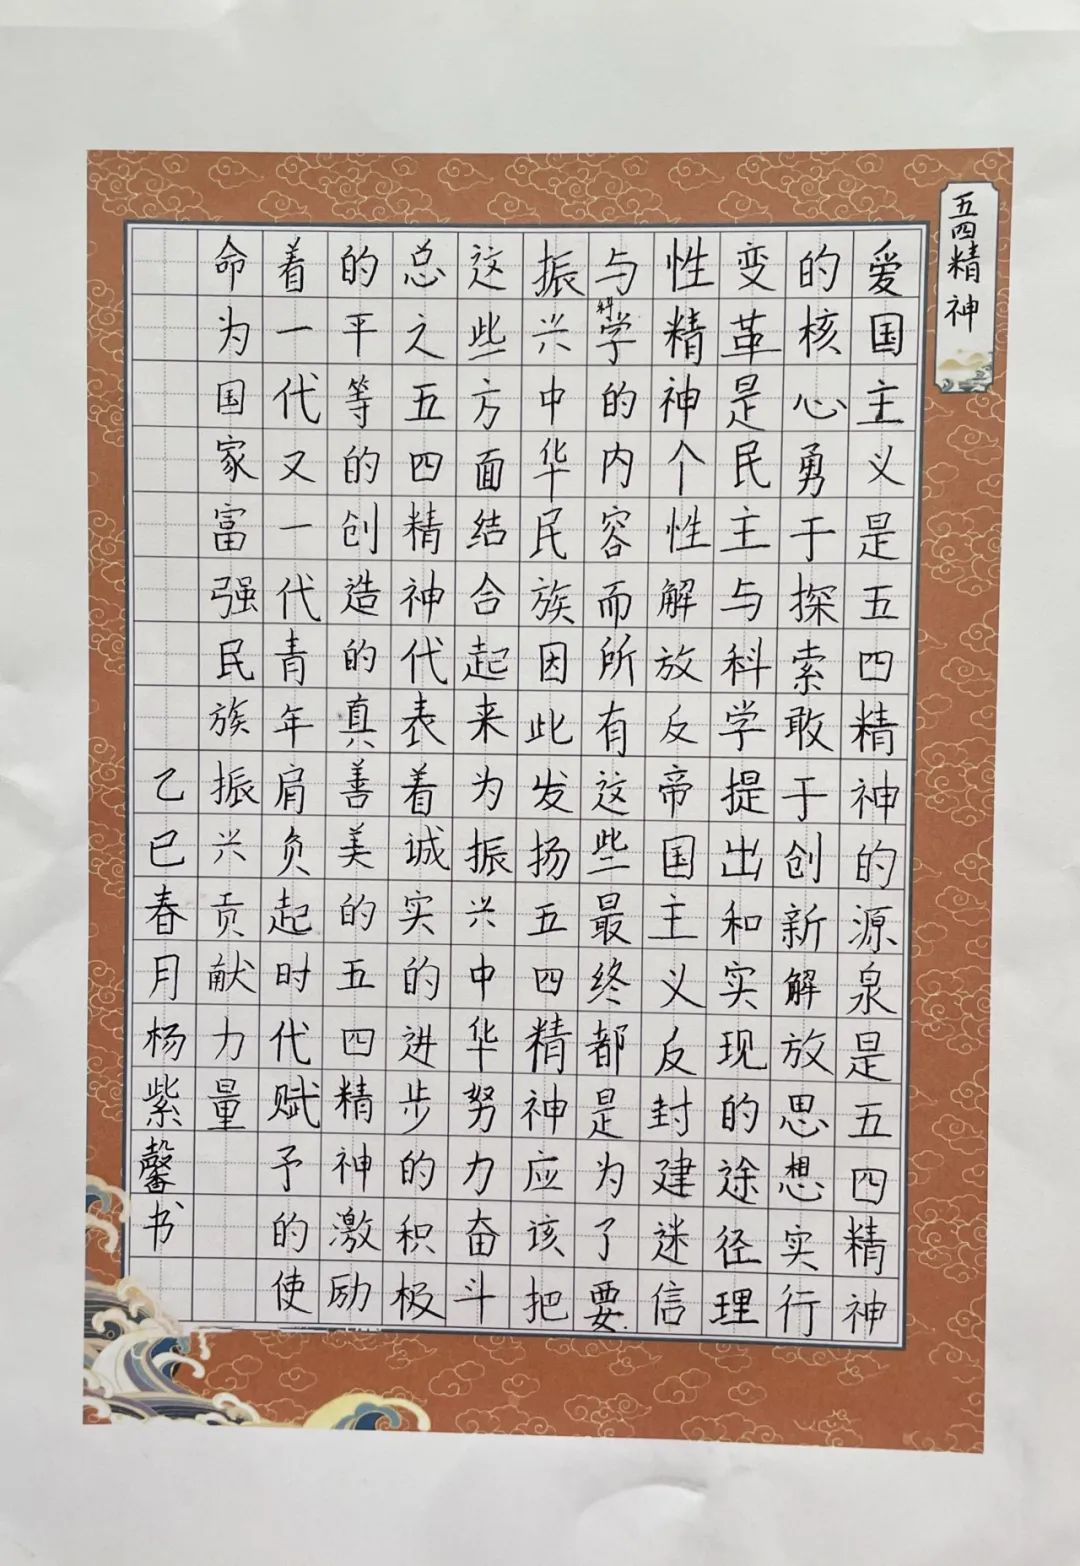 五四精神
爱国主义是五四精神的源泉是五四精神
的核心勇于探索敢于创新解放思想实行
变革是民主与科学提出和实现的途径理
性精神个性解放反帝国主义反封建迷信
与科学的内容而所有这些最终都是为了要
振兴中华民族因此发扬五四精神应该把
这些方面结合起来为振兴中华努力奋斗
总之五四精神代表着诚实的进步的积极
的平等的创造的真善美的五四精神激励
着一代又一代青年肩负起时代赋予的使
命为国家富强民族振兴贡献力量
乙巳春月杨紫馨书